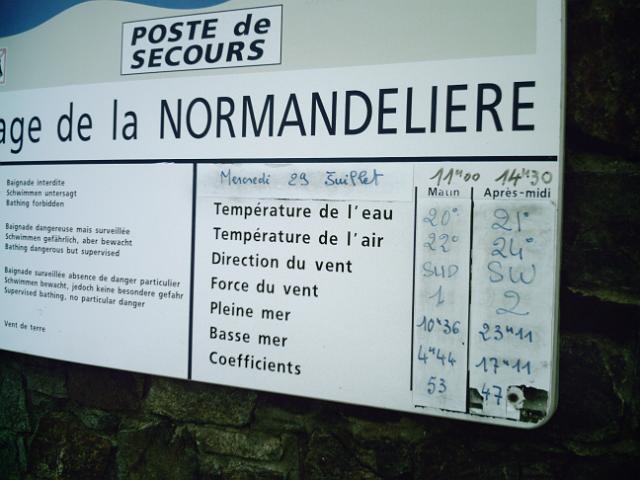 POSTE de
SECOURS
age de la NORMANDELIERE
Baignade interdite
Schwimmen untersagt
Bathing forbidden
Baignade dangereuse mais surveillée
Schwimmen gefährlich, aber bewacht
Bathing dangerous but supervised
Baignade surveillée absence de danger particulier
Schwimmen bewacht, jedoch keine besondere gefahr
Supervised bathing, no particular danger
Vent de terre
Mercredi 29 Juillet 11H00 14H30
Matin Après-midi
Température de l'eau 20° 21°
Température de l'air 22° 24°
Direction du vent SUD SW
Force du vent 1 2
Pleine mer 10H36 23H11
Basse mer 4H44 17H11
Coefficients 53 47